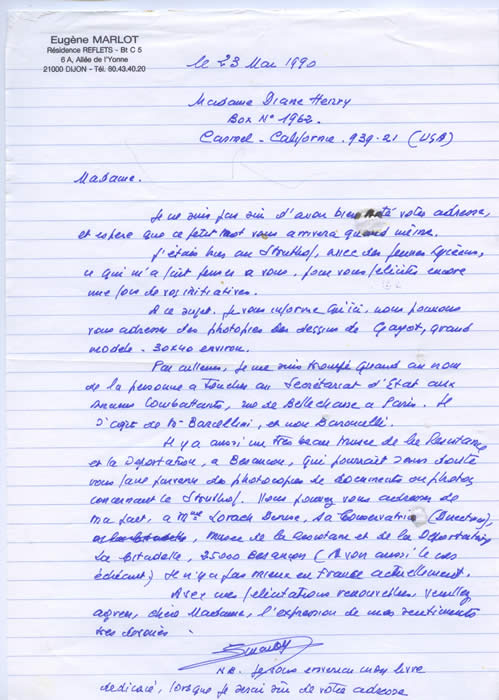 Eugène MARLOT
Résidence REFLETS - Bt C 5
6 A, Allée de l'Yonne
21000 DIJON - Tél. 80.43.40.20
le 23 Mai 1990
Madame Diane Henry
Box N° 1962.
Carmel - Californie. 939-21 (USA)
Madame.
Je ne suis pas sûr d'avoir bien noté votre adresse,
et espère que ce petit mot vous arrivera quand même.
J'étais hier au Struthof, avec des jeunes lycéens,
ce qui m'a fait penser à vous, pour vous féliciter encore
une fois de vos initiatives.
A ce sujet. Je vous informe qu'ici, nous pouvons
vous adresser des photocopies des dessins de Gayot, grand
modèle - 30x40 environ.
Par ailleurs, je me suis trompé quand au nom
de la personne à toucher au Secrétariat d'Etat aux
Anciens Combattants, rue de Bellechasse à Paris. Il
s'agit de Mr Barcellini, et non Baroncelli.
Il y a aussi un très beau Musée de la Résistance
et la Déportation, à Besançon, qui pourrait sans doute
vous faire parvenir des photocopies de documents ou photos
concernant le Struthof. Vous pouvez vous adresser de
ma part, à Mme Lorach Denise, la Conservatrice (Directrice),
Musée de la Résistance et de la Déportation
La Citadelle, 25000 Besançon (A voir aussi le cas
échéant) Il n'y a pas mieux en France actuellement.
Avec mes félicitations renouvelées, veuillez
agréer, chère Madame, l'expression de mes sentiments
très dévoués.
NB. Je vous enverrai mon livre
dédicacé, lorsque je serai sûr de votre adresse